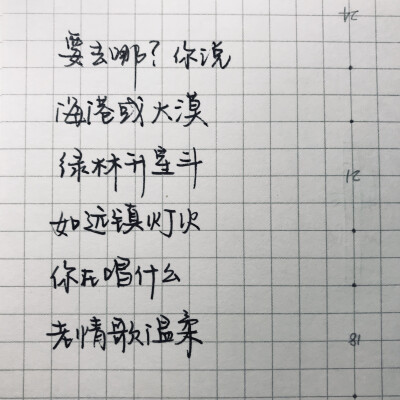 要去哪？你说
海港或大漠
绿林升星斗
如远镇灯火
你在唱什么
老情歌温柔
24
21
18